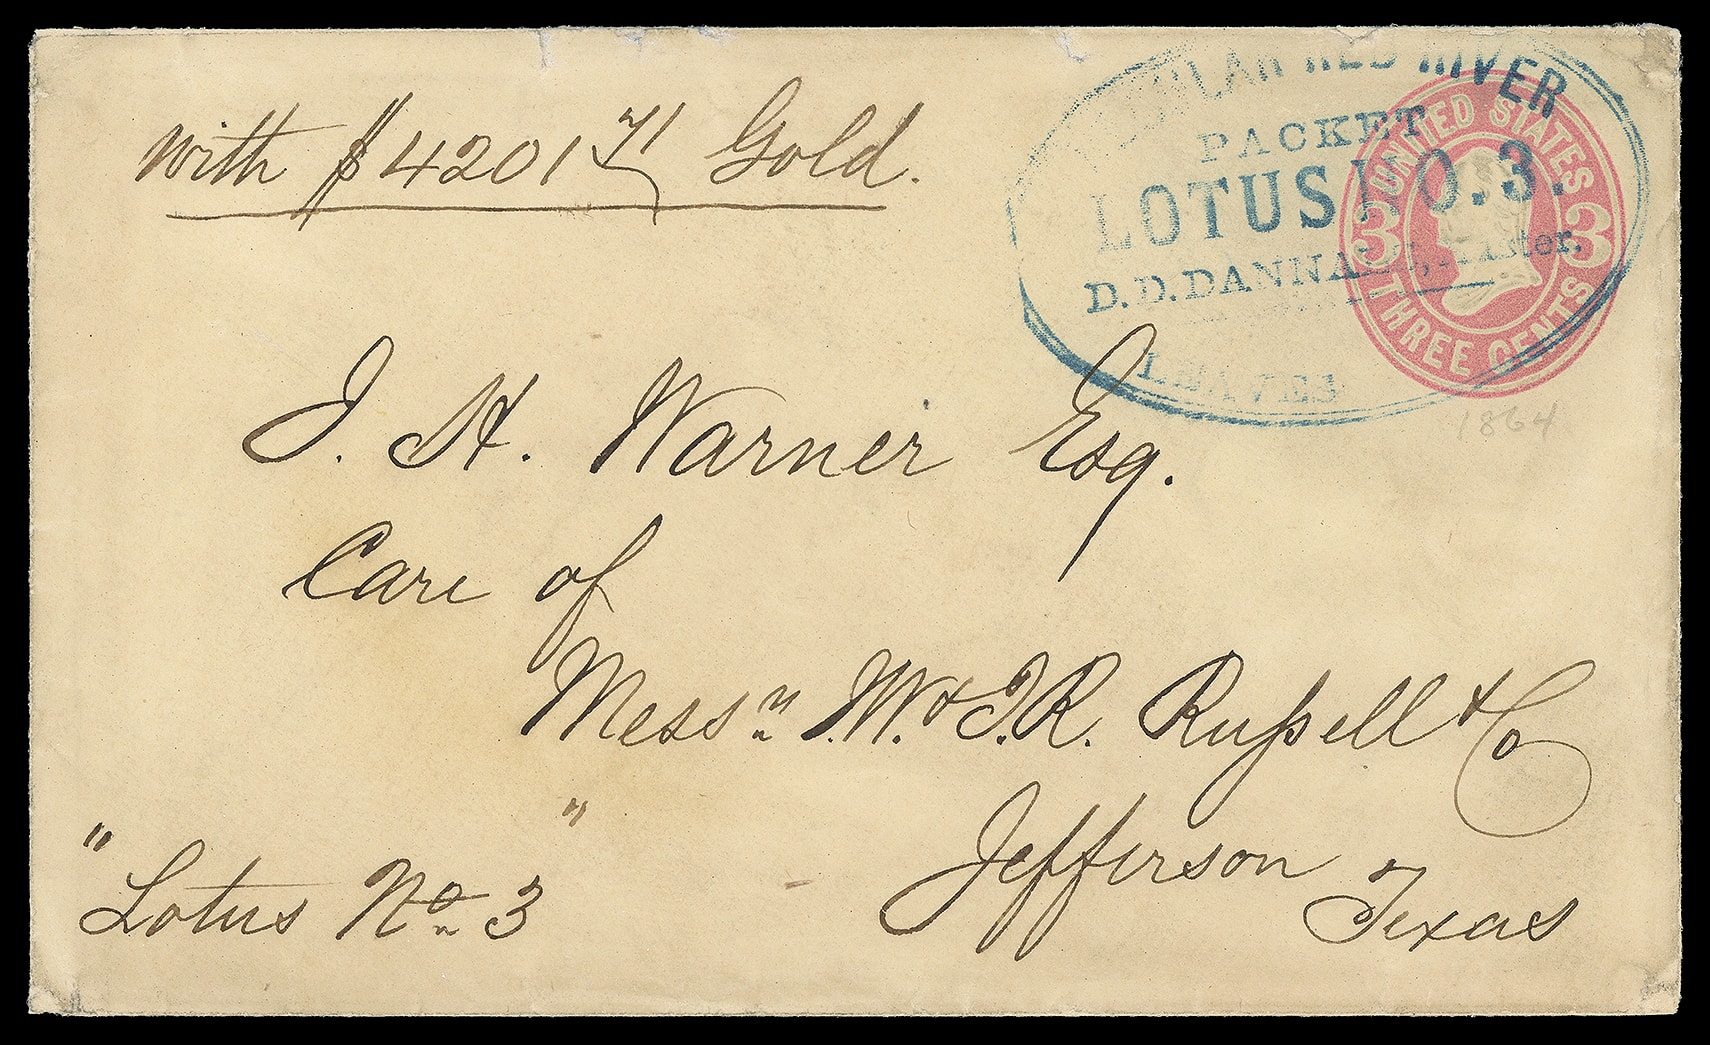 with $4201 71 Gold.
REGULAR RED RIVER
PACKET
LOTUS NO. 3.
D. D. DANNALS, Master.
LEAVES
UNITED STATES
3 3
THREE CENTS
1864
J. H. Warner Esq.
Care of
Messrs J.W. & J.R. Russell & Co
Jefferson
Texas
"Lotus No 3"